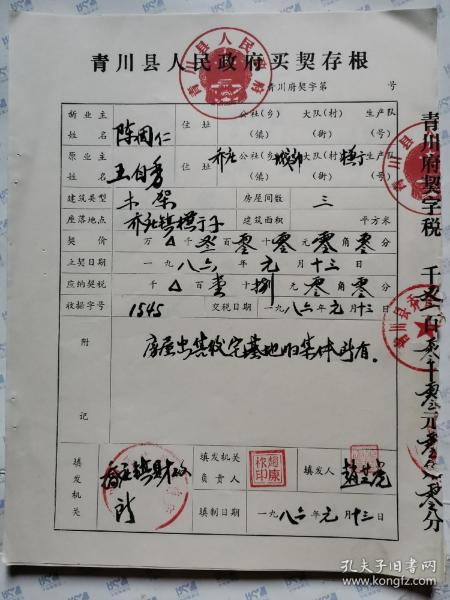 青川县人民政府买契存根
青川府契字第 号
新业主姓名 陈周仁 住址 公社(乡)(镇) 大队(村)(街) 生产队(号)
原业主姓名 王自秀 住址 乔庄 公社(乡)(镇) 城郊 大队(村)(街) 生产队(号)
建筑类型 木架 房屋间数 三
座落地点 乔庄镇 建筑面积 平方米
契价 万 千 百 零 十 零 元 零 角 零 分
立契日期 一九八六年元月十三日
应纳契税 千 百 壹 十 捌 元 零 角 零 分
收据字号 1545 交税日期 一九八六年元月十三日
附记 房屋出售后宅基地归集体所有。
填发机关 乔庄镇财政所 填发机关负责人 填发人
填制日期 一九八六年元月十三日
青川府契字税 千 百 十 元 角 零分
孔夫子旧书网
www.kongfz.com